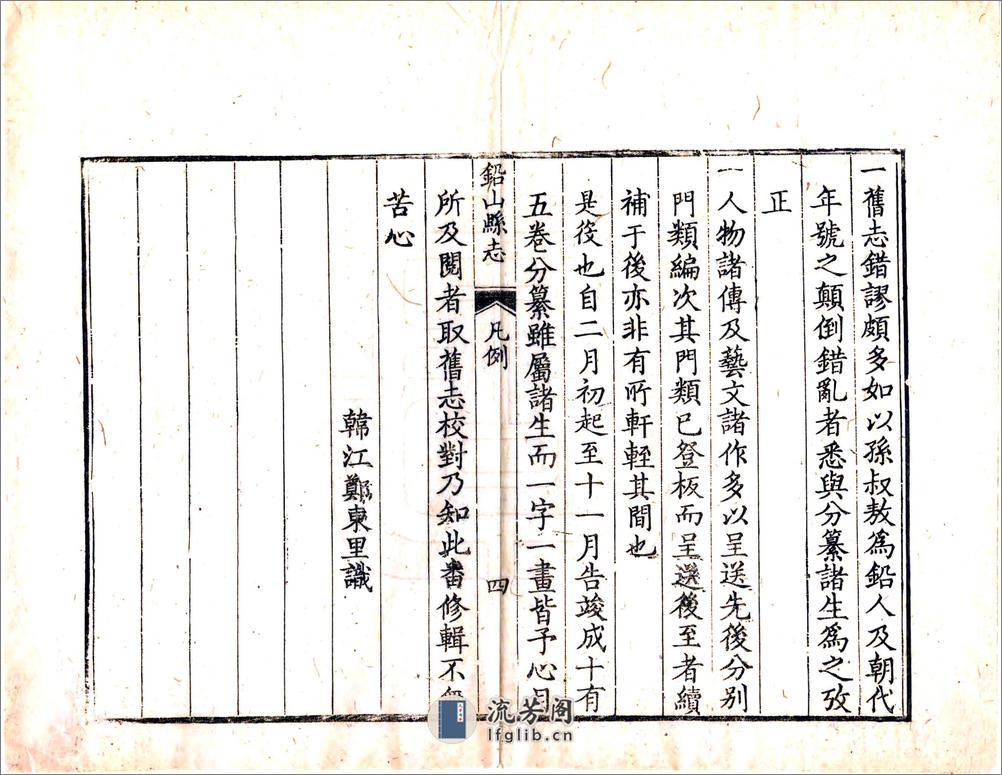 一舊志錯謬頗多如以孫叔敖為鉛人及朝代
年號之顛倒錯亂者悉與分纂諸生為之攷
正
一人物諸傳及藝文諸作多以呈送先後分別
門類編次其門類已登板而呈選後至者續
補于後亦非有所軒輊其間也
是役也自二月初起至十一月告竣成十有
五卷分纂雖屬諸生而一字一畫皆予心目
鉛山縣志
凡例
四
所及閱者取舊志校對乃知此畨修輯不無
苦心
韓江鄭東里識
流芳阁
lfglib.cn